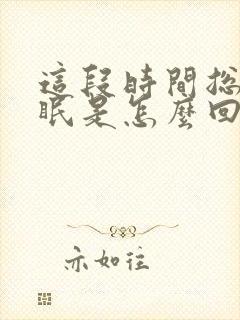 這段時間總
眠是怎麼回
亦如往